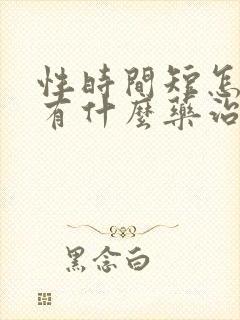 性時間短怎
有什麼藥治
黑念白